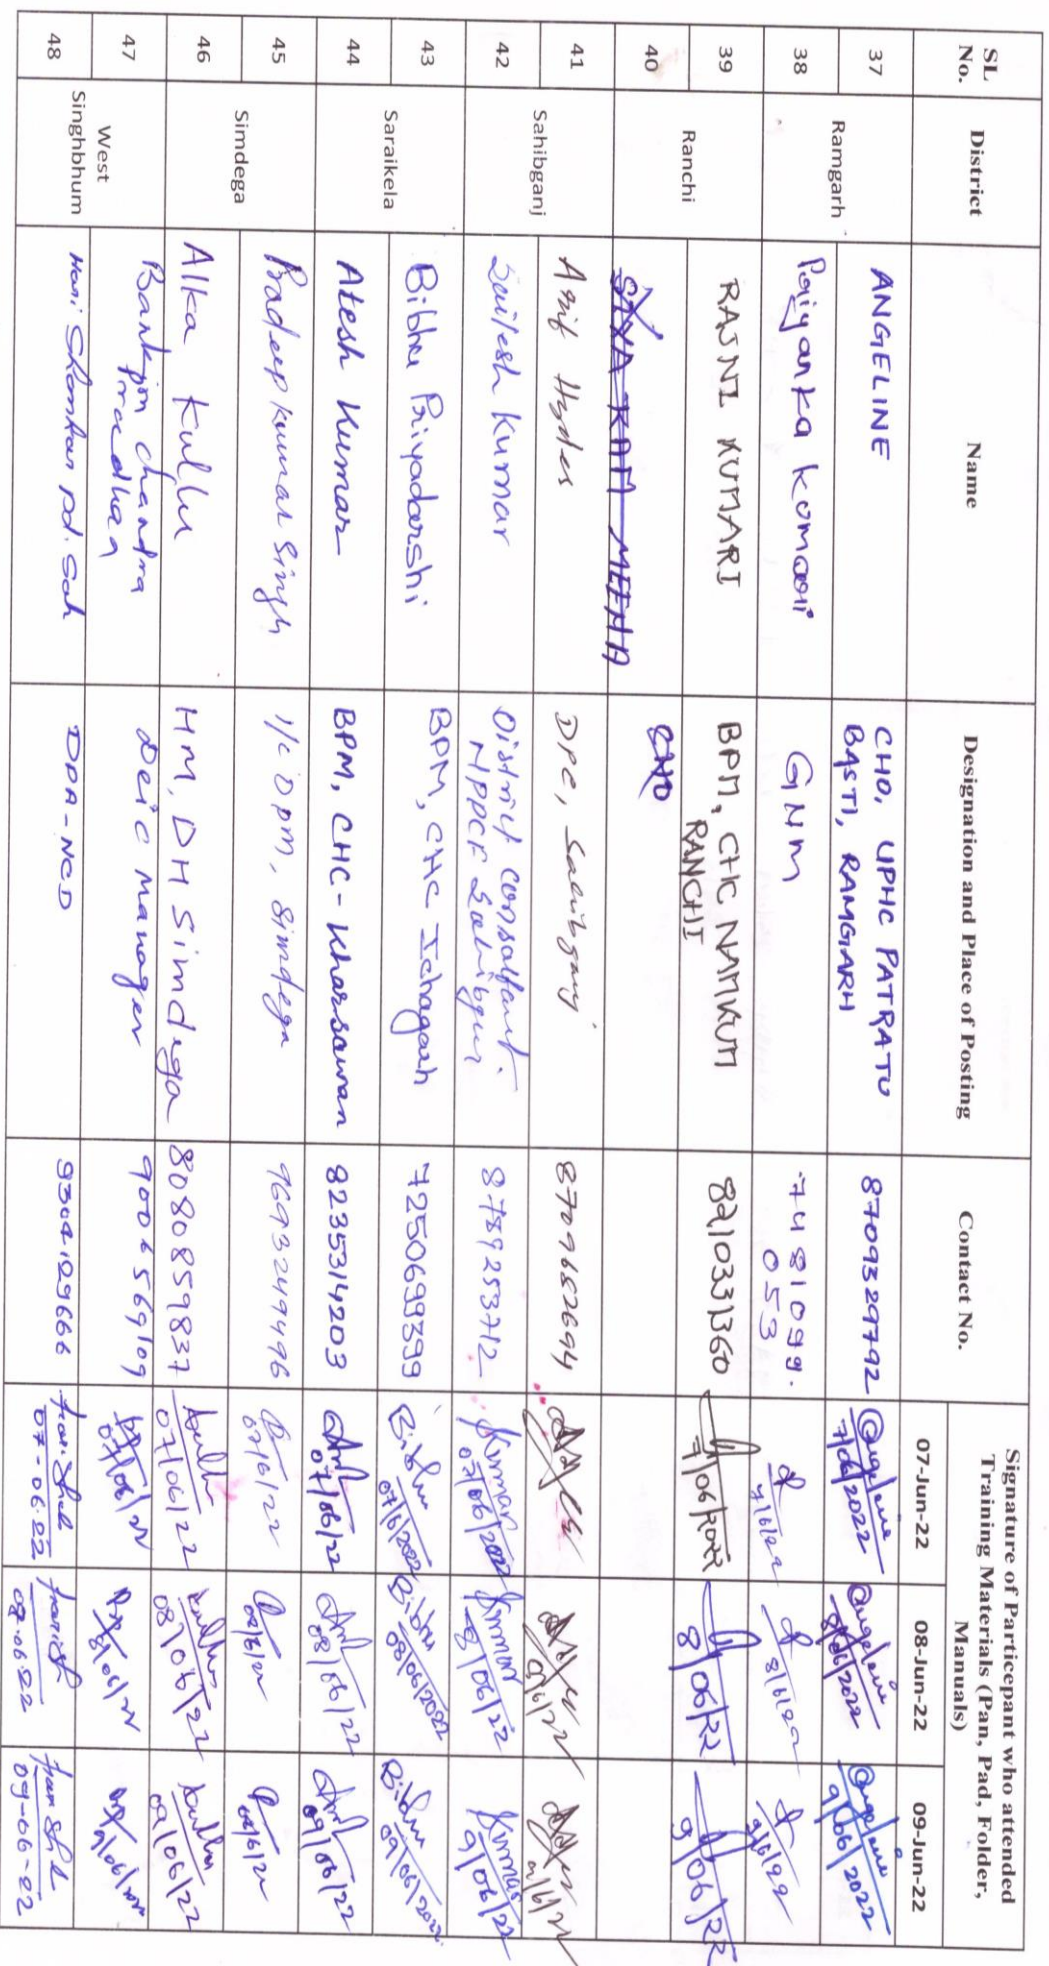 SL No.
District
Name
Designation and Place of Posting
Contact No.
Signature of Particepant who attended Training Materials (Pan, Pad, Folder, Manuals)
07-Jun-22
08-Jun-22
09-Jun-22
37
Ramgarh
ANGELINE
CHO, UPHC PATRATU
BASTI, RAMGARH
8709329792
Angeline
7/06/2022
Angeline
8/06/2022
Angeline
9/06/2022
38
Priyanka Kumari
GNM
7481099.
053
7/6/22
8/6/22
9/6/22
39
Ranchi
RAJNI KUMARI
BPM, CHC NAMKUM
RANCHI
8210331360
7/06/2022
8/06/22
9/06/22
40
MEENA
CHO
41
Sahibganj
Asif Hyder
DPC, Sahibganj
8709682694
42
Sailesh Kumar
District Consultant.
NPPCF Sahibganj
8789253712
Kumar
07/06/2022
Kumar
8/06/22
Kumar
9/06/22
43
Saraikela
Bibhu Priyadarshi
BPM, CHC Ichagarh
7250699399
Bibhu
07/6/2022
Bibhu
08/06/2022
Bibhu
09/06/2022
44
Atesh Kumar
BPM, CHC - Kharsawan
8235314203
07/06/22
08/06/22
09/06/22
45
Simdega
Pradeep Kumar Singh
I/c DPM, Simdega
9693249496
07/6/22
08/6/22
46
Alka Kullu
HM, DH Simdega
8080859837
Kullu
07/06/22
Kullu
08/06/22
Kullu
09/06/22
47
West Singhbhum
Bankim Chandra
Pradhan
Deic Manager
9006569109
07/06/22
8/06/22
9/06/22
48
Hari Shankar Pd. Sah
DPA-NCD
9304129666
07-06-22
08-06-22
09-06-22